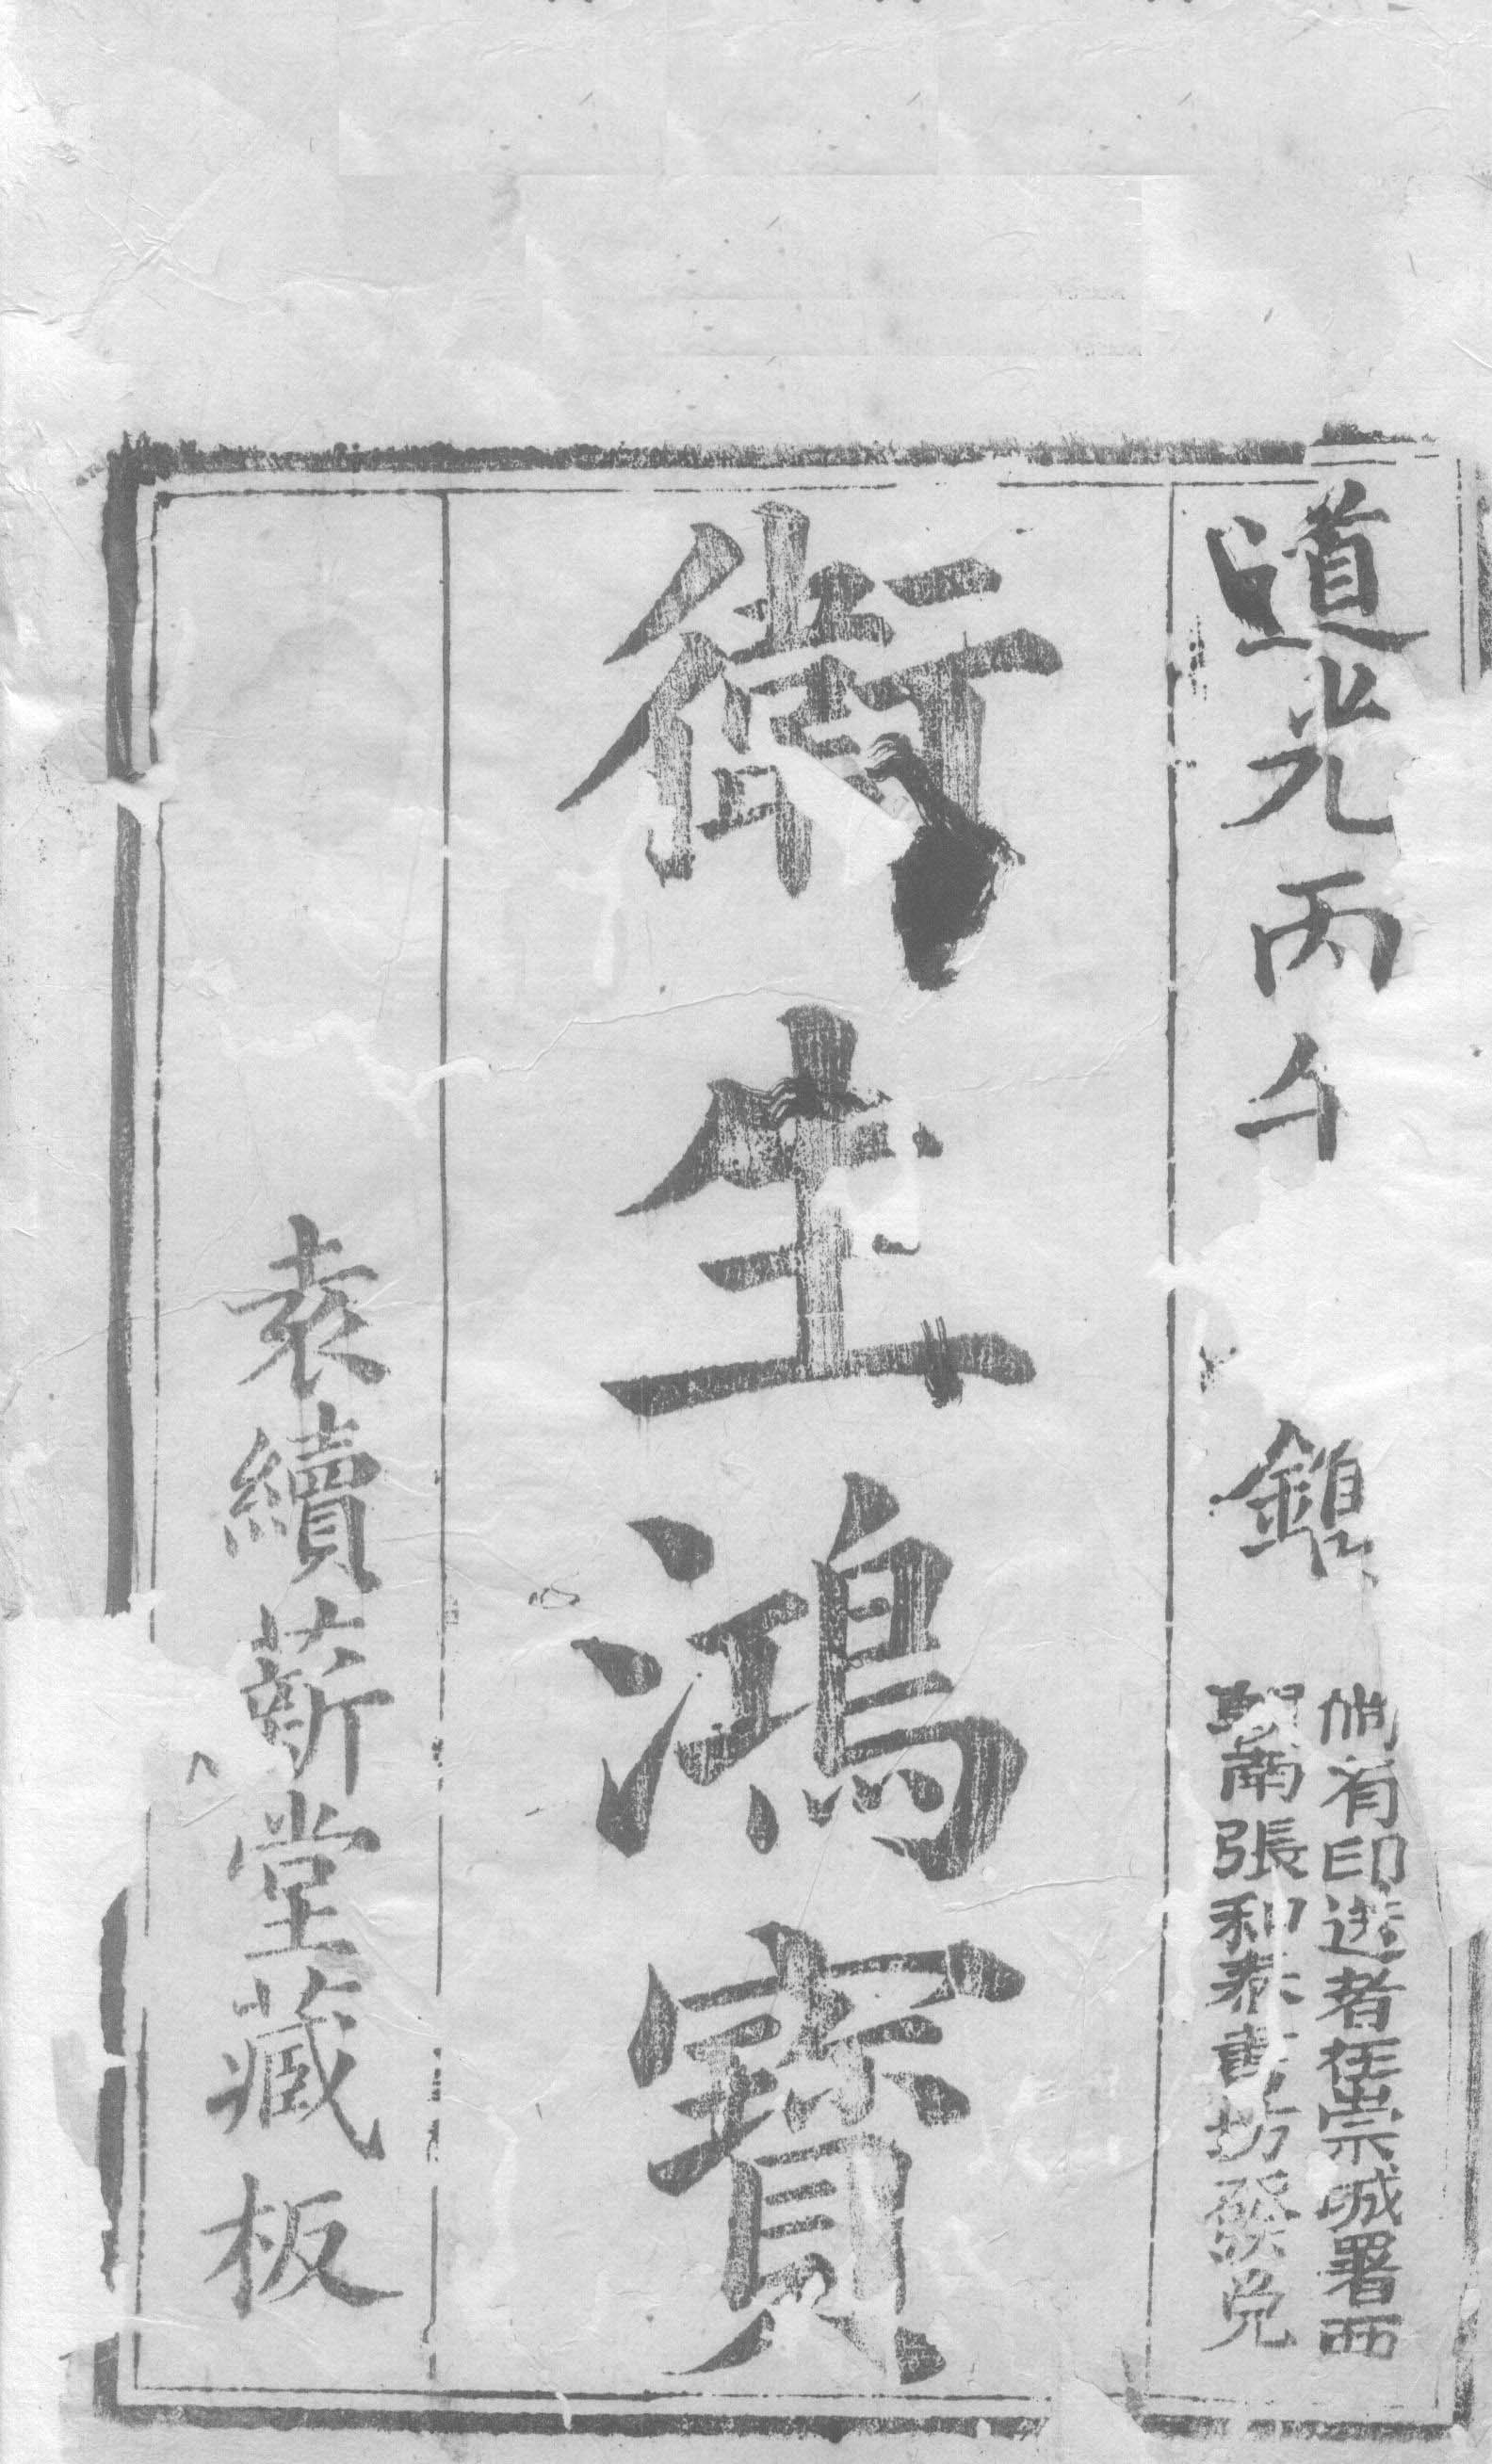 道光丙午　鐫
倘有印送者在崇城署西
朝南張和泰書坊發兌
衛生鴻寶
袁續薪堂藏板